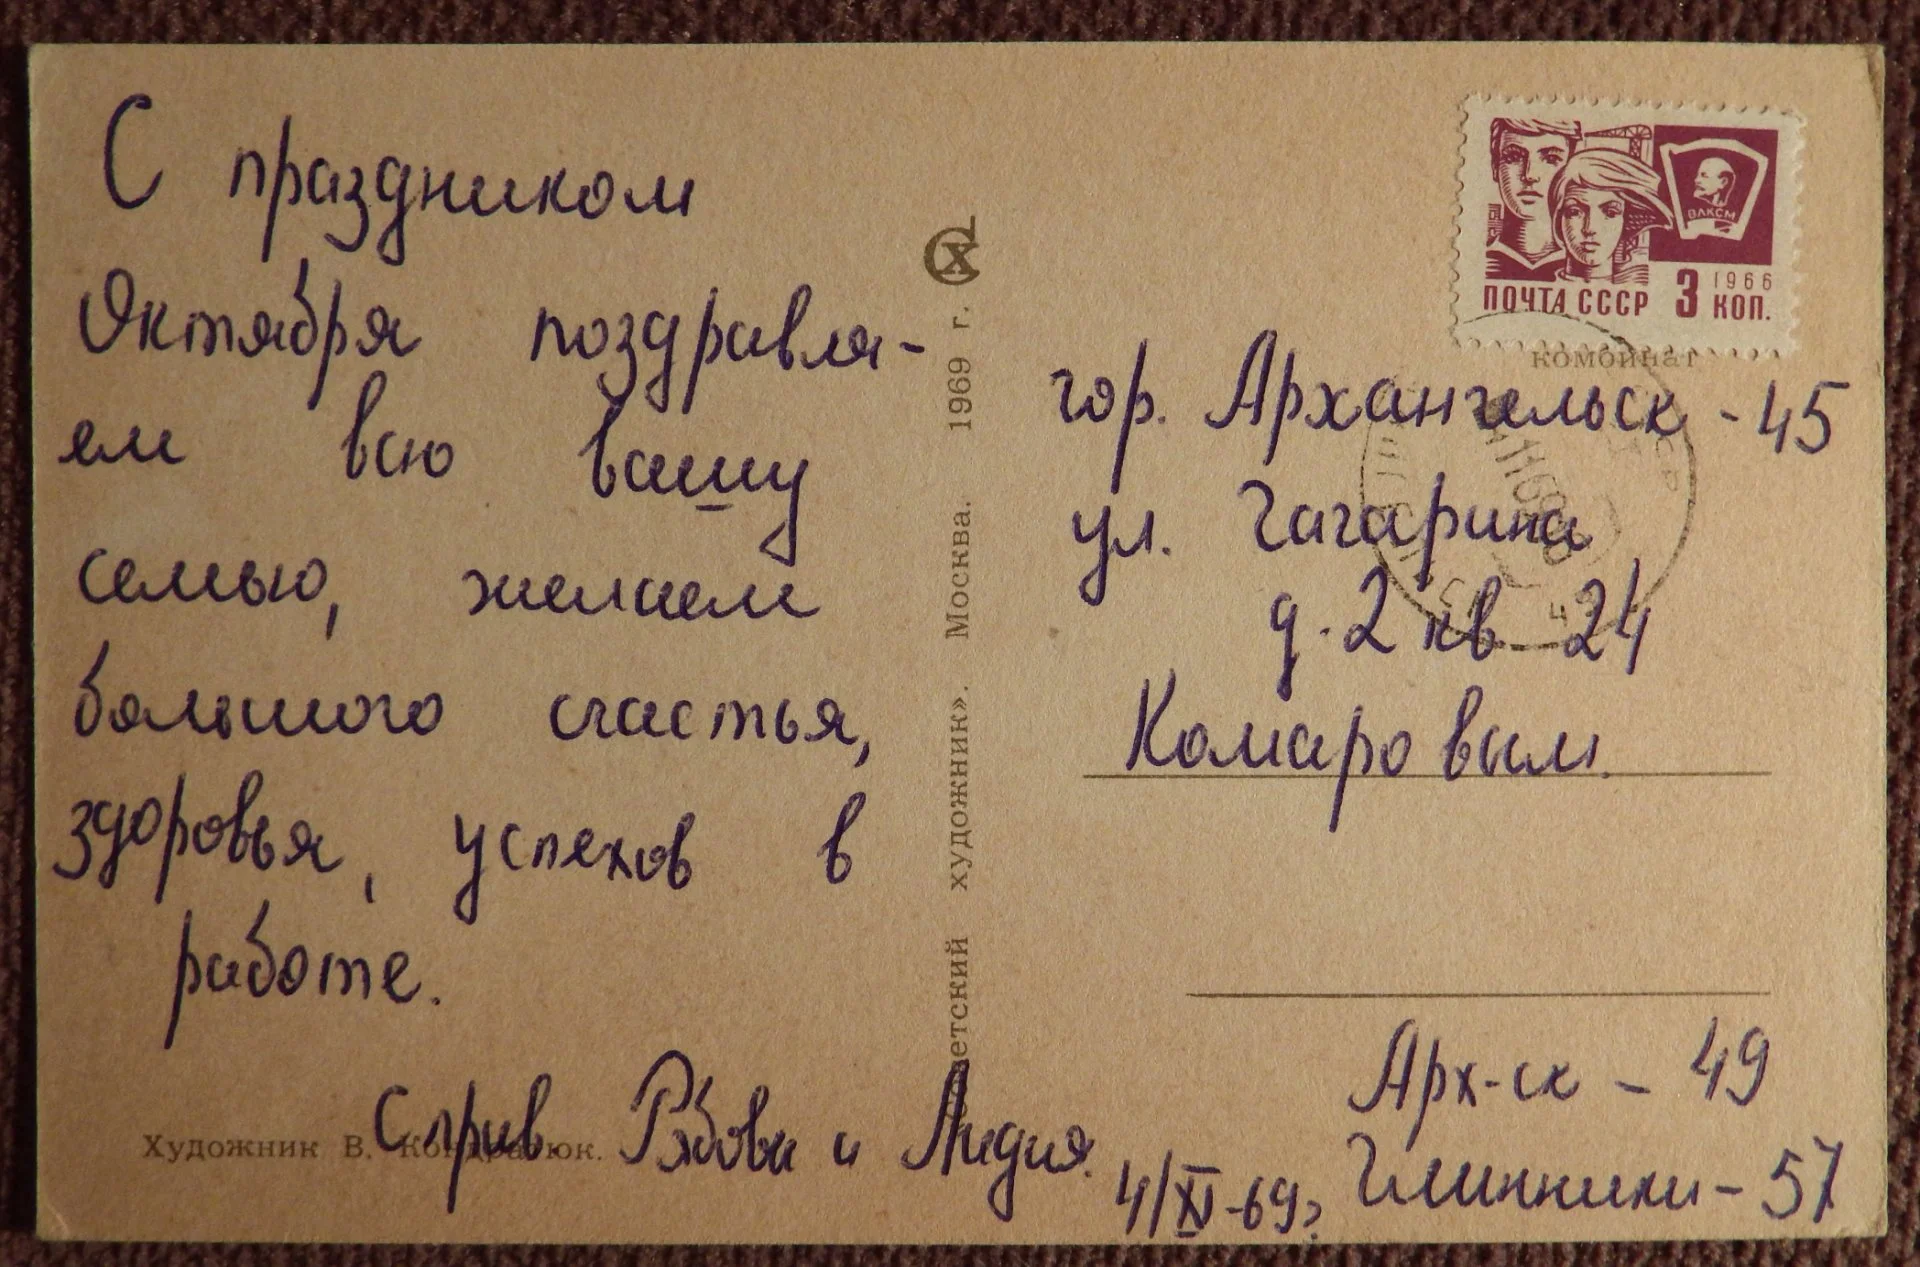 С праздником
Октября поздравля-
ем всю вашу
семью, желаем
большого счастья,
здоровья, успехов в
работе.
С прив Рябовы и Лидия.
4/XI-69г
Художник В. Кондратюк.
Советский художник». Москва. 1969 г.
СХ
ВЛКСМ
1966
ПОЧТА СССР 3 КОП.
комбинат
гор. Архангельск - 45
ул. Гагарина
д. 2 кв 24
Комаровым.
Арх-ск - 49
Глинники - 57